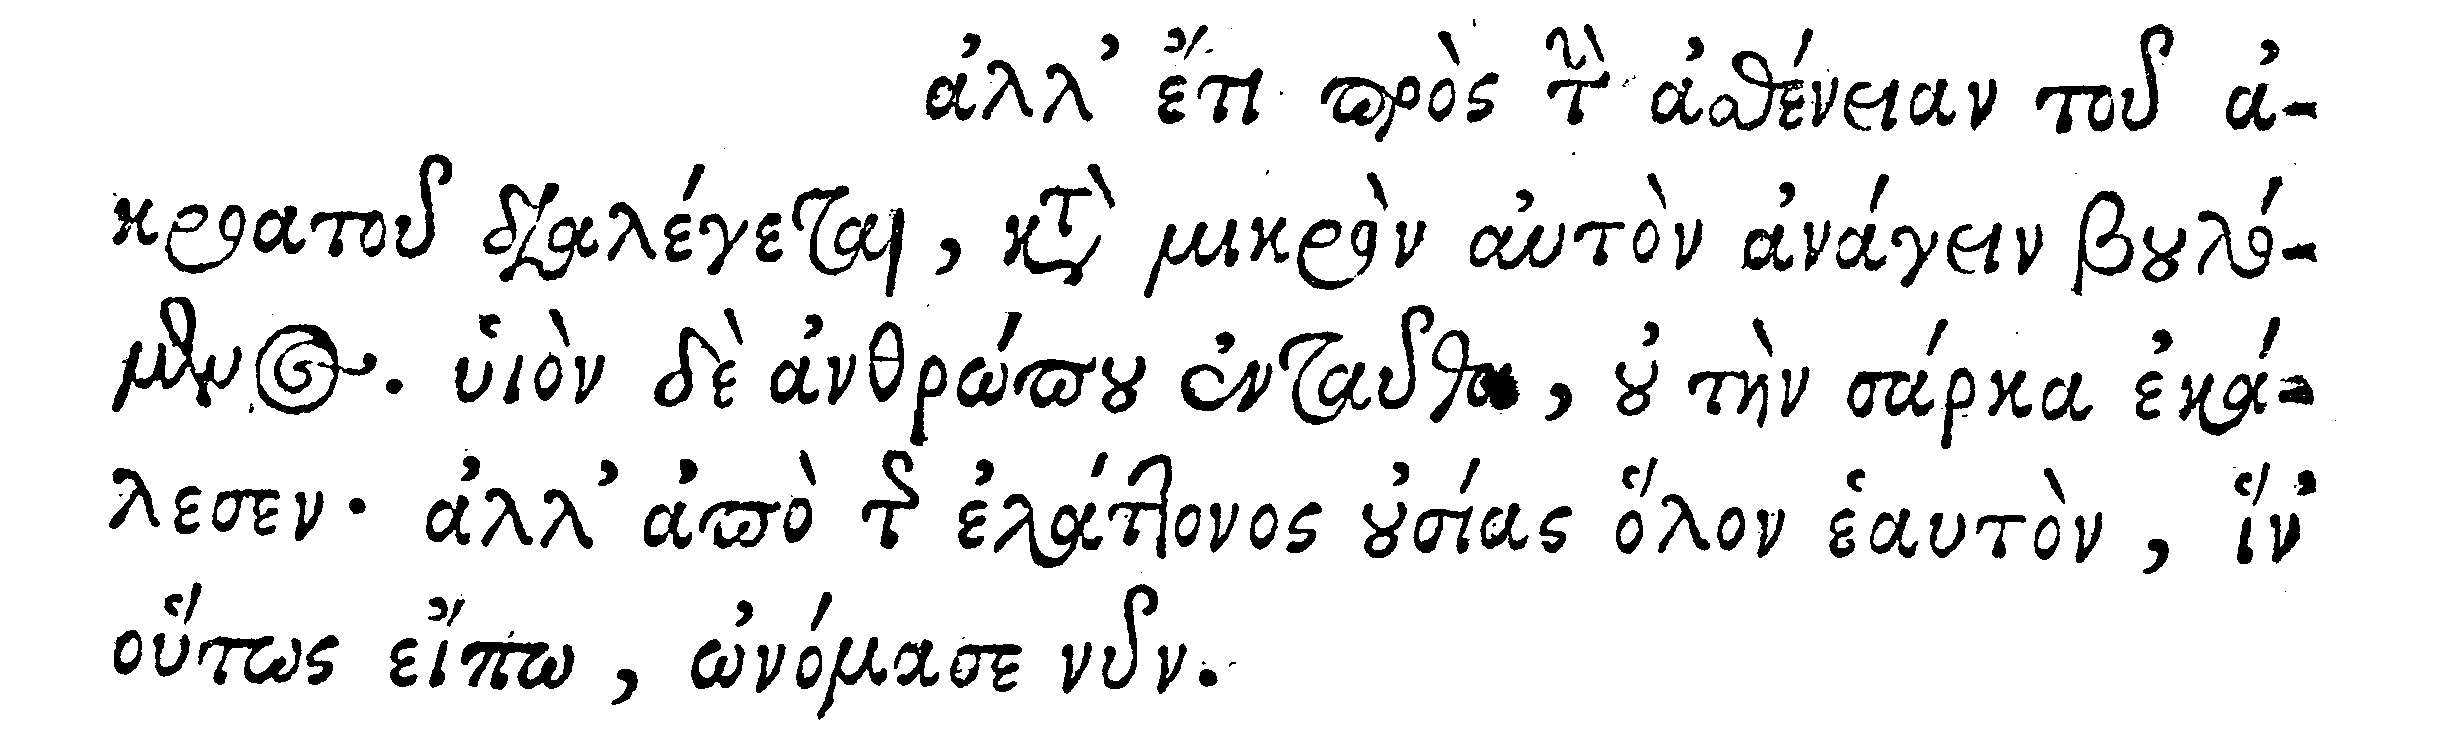 ἀλλ’ ἔτι πρὸς τὴν ἀσθένειαν τοῦ ἀ-
κροατοῦ διαλέγεται, κατὰ μικρὸν αὐτὸν ἀνάγειν βουλό-
μενος. υἱὸν δὲ ἀνθρώπου ἐνταῦθα, οὐ τὴν σάρκα ἐκά-
λεσεν· ἀλλ’ ἀπὸ τῆς ἐλάττονος οὐσίας ὅλον ἑαυτὸν, ἵν’
οὕτως εἴπω, ὠνόμασε νῦν.